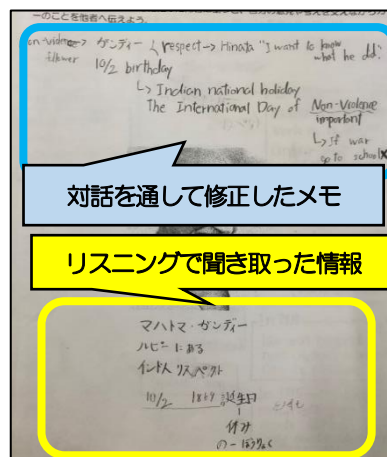 ーのことを他者へ伝えよう。
non-violence→ ガンディー respect→ Hinata "I want to know what he did."
10/2 birthday
↳ Indian national holiday
The International Day of Non-Violence
important
↳ If war
go to school×
対話を通して修正したメモ
リスニングで聞き取った情報
マハトマ・ガンディー
ルピーにある
インド人 リスペクト
10/2 1869 誕生日
休み
のーぼうりょく